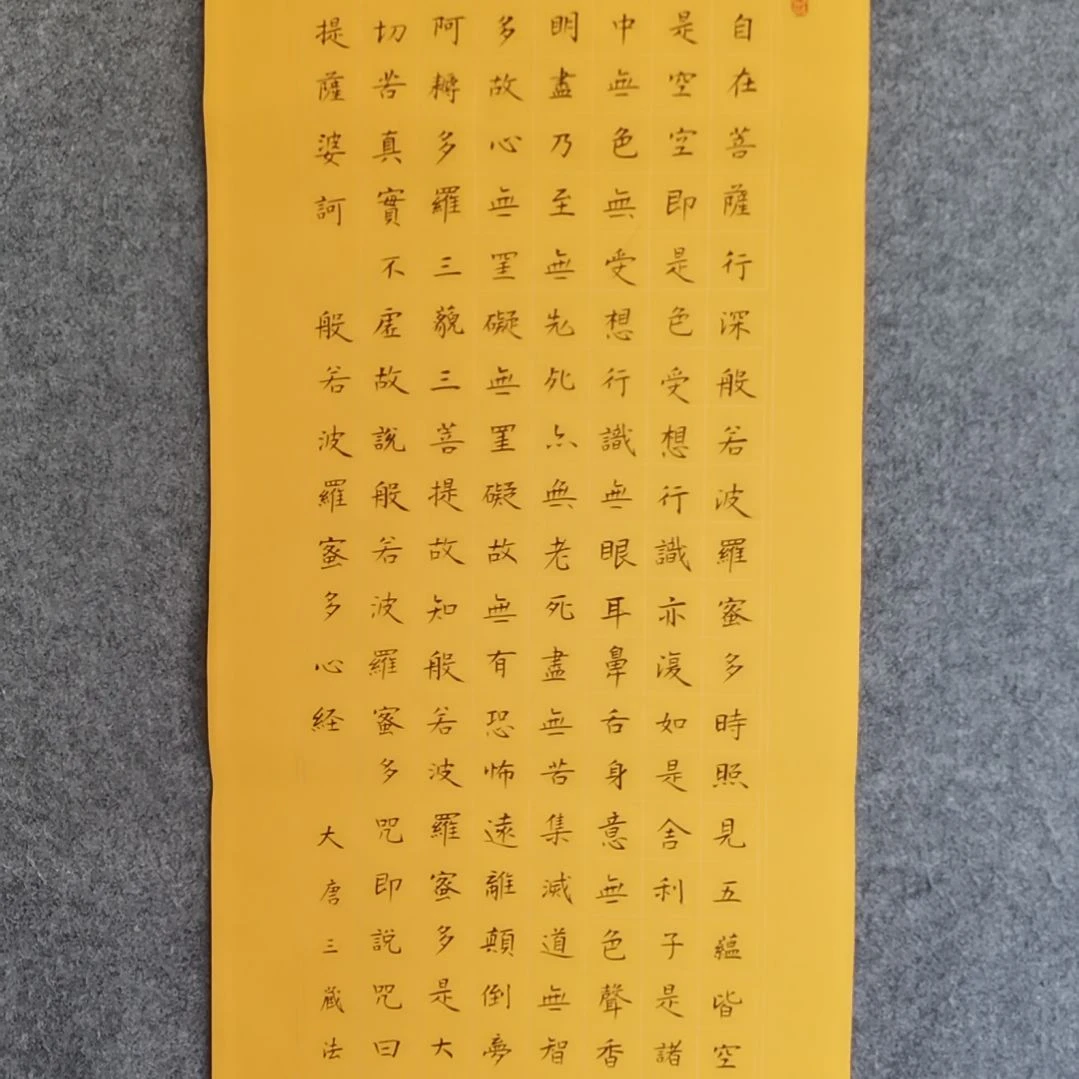 自在菩薩行深般若波羅蜜多時照見五蘊皆空
是空空即是色受想行識亦復如是舍利子是諸
中無色無受想行識無眼耳鼻舌身意無色聲香
明盡乃至無老死亦無老死盡無苦集滅道無智
多故心無罣礙無罣礙故無有恐怖遠離顛倒夢
阿耨多羅三藐三菩提故知般若波羅蜜多是大
切苦真實不虛故說般若波羅蜜多咒即說咒曰
提薩婆訶 般若波羅蜜多心経 大唐三藏法